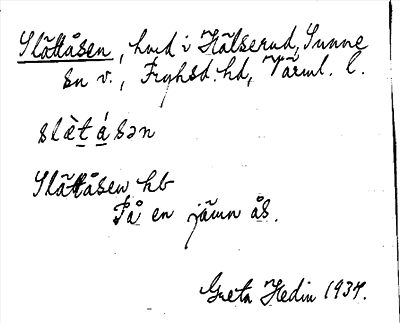 Slättåsen, hmd i Hälserud, Sunne
sn v., Fryksd. hd, Värml. l.
slὲtásən
Slättåsen hb
På en jämn ås.
Greta Hedin 1937.